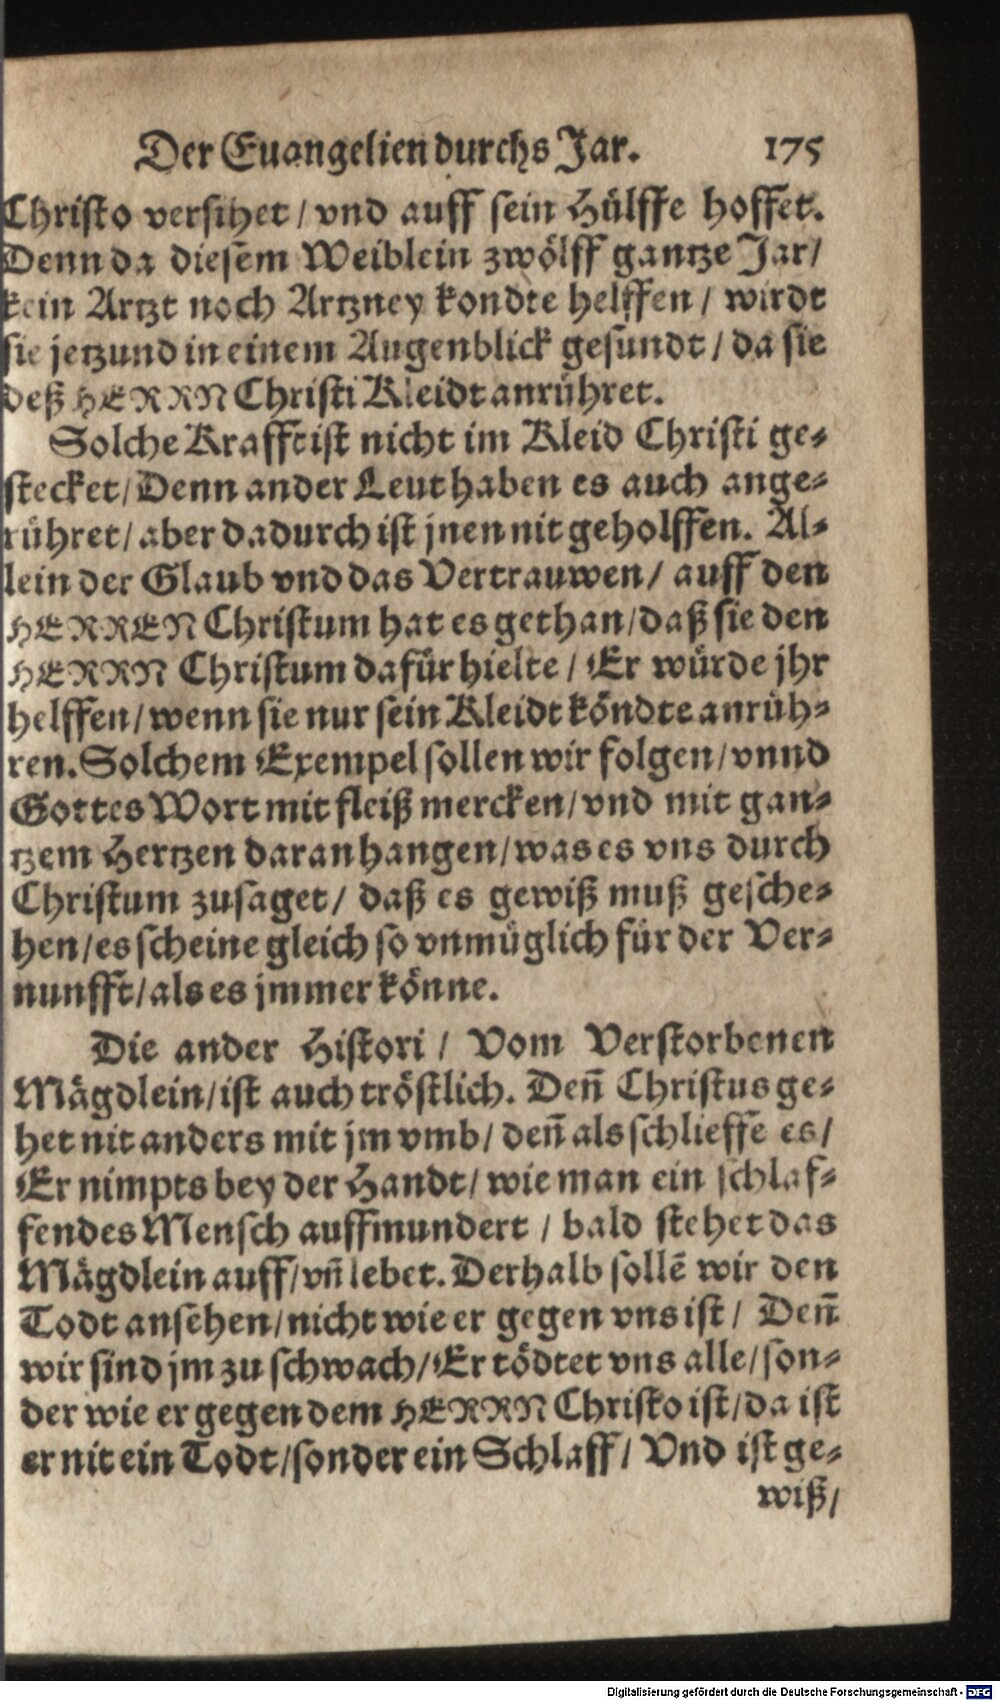 Der Euangelien durchs Jar. 175
Christo versihet / vnd auff sein Hülffe hoffet.
Denn da diesem Weiblein zwölff gantze Jar /
kein Artzt noch Artzney kondte helffen / wirdt
sie jetzund in einem Augenblick gesundt / da sie
deß HERRN Christi Kleidt anrühret.
Solche Krafft ist nicht im Kleid Christi ge-
stecket / Denn ander Leut haben es auch ange-
rühret / aber dadurch ist jnen nit geholffen. Al-
lein der Glaub vnd das Vertrauwen / auff den
HERREN Christum hat es gethan / daß sie den
HERRN Christum dafür hielte / Er würde jhr
helffen / wenn sie nur sein Kleidt köndte anrüh-
ren. Solchem Exempel sollen wir folgen / vnnd
Gottes Wort mit fleiß mercken / vnd mit gan-
tzem Hertzen daran hangen / was es vns durch
Christum zusaget / daß es gewiß muß gesche-
hen / es scheine gleich so vnmüglich für der Ver-
nunfft / als es jmmer könne.
Die ander Histori / Vom Verstorbenen
Mägdlein / ist auch tröstlich. Den̄ Christus ge-
het nit anders mit jm vmb / den̄ als schlieffe es /
Er nimpts bey der Handt / wie man ein schlaf-
fendes Mensch auffmundert / bald stehet das
Mägdlein auff / vn̄ lebet. Derhalb sollē wir den
Todt ansehen / nicht wie er gegen vns ist / Den̄
wir sind jm zu schwach / Er tödtet vns alle / son-
der wie er gegen dem HERRN Christo ist / da ist
er nit ein Todt / sonder ein Schlaff / Vnd ist ge-
wiß /
Digitalisierung gefördert durch die Deutsche Forschungsgemeinschaft - DFG